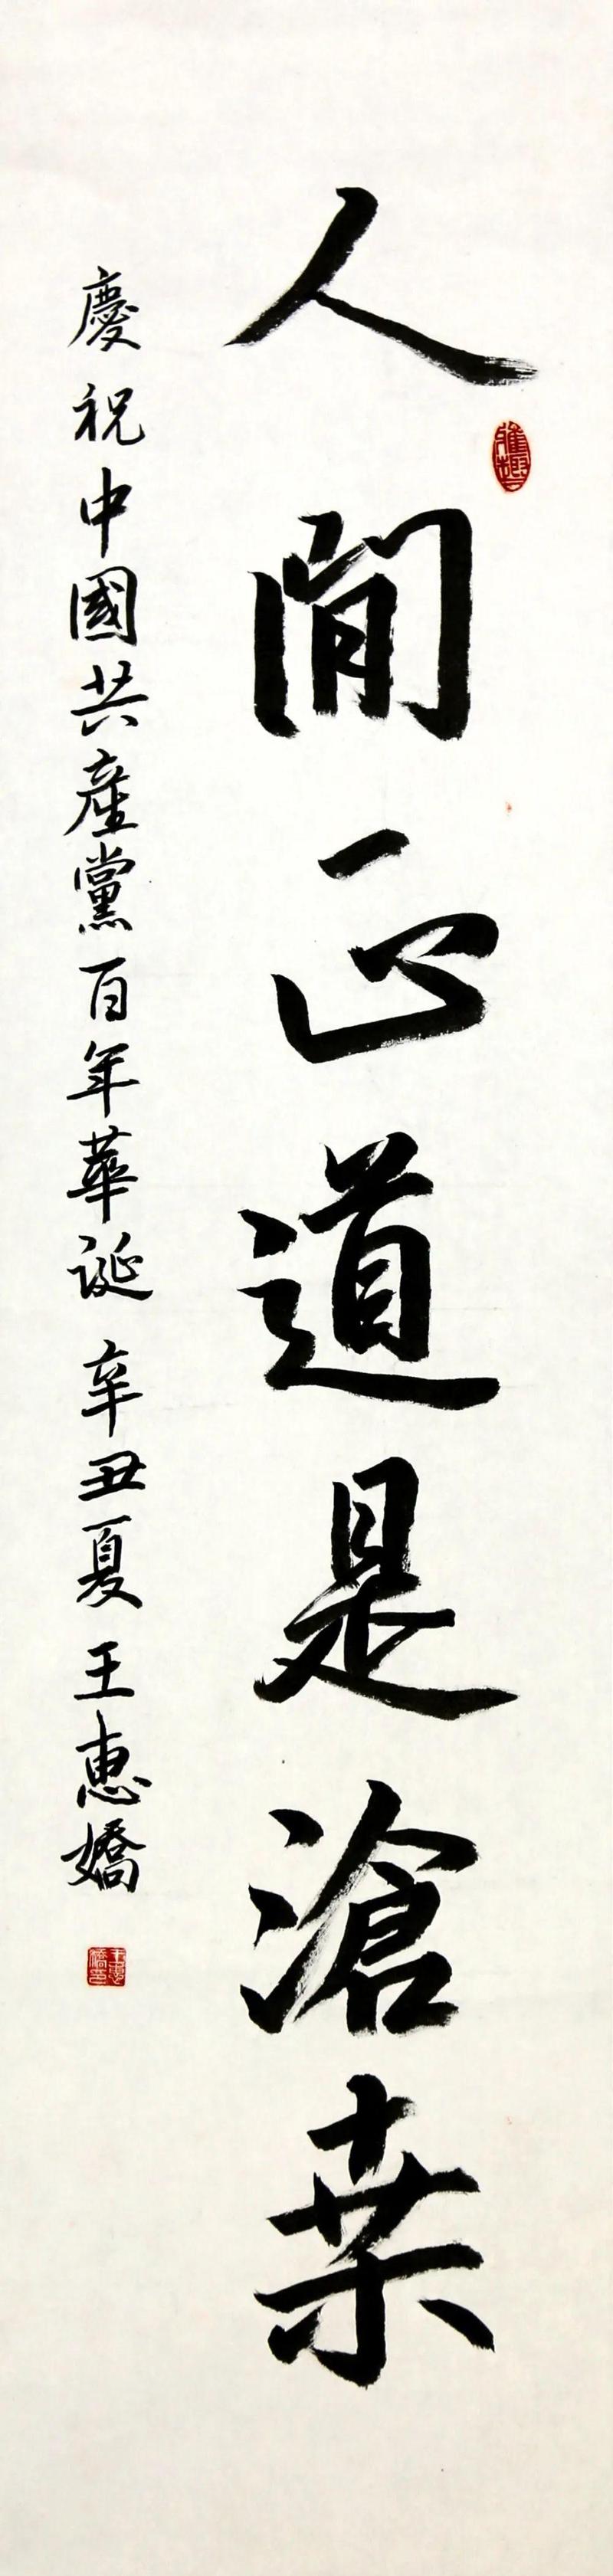 人間正道是滄桑
慶祝中國共產黨百年華誕 辛丑夏 王惠嬌